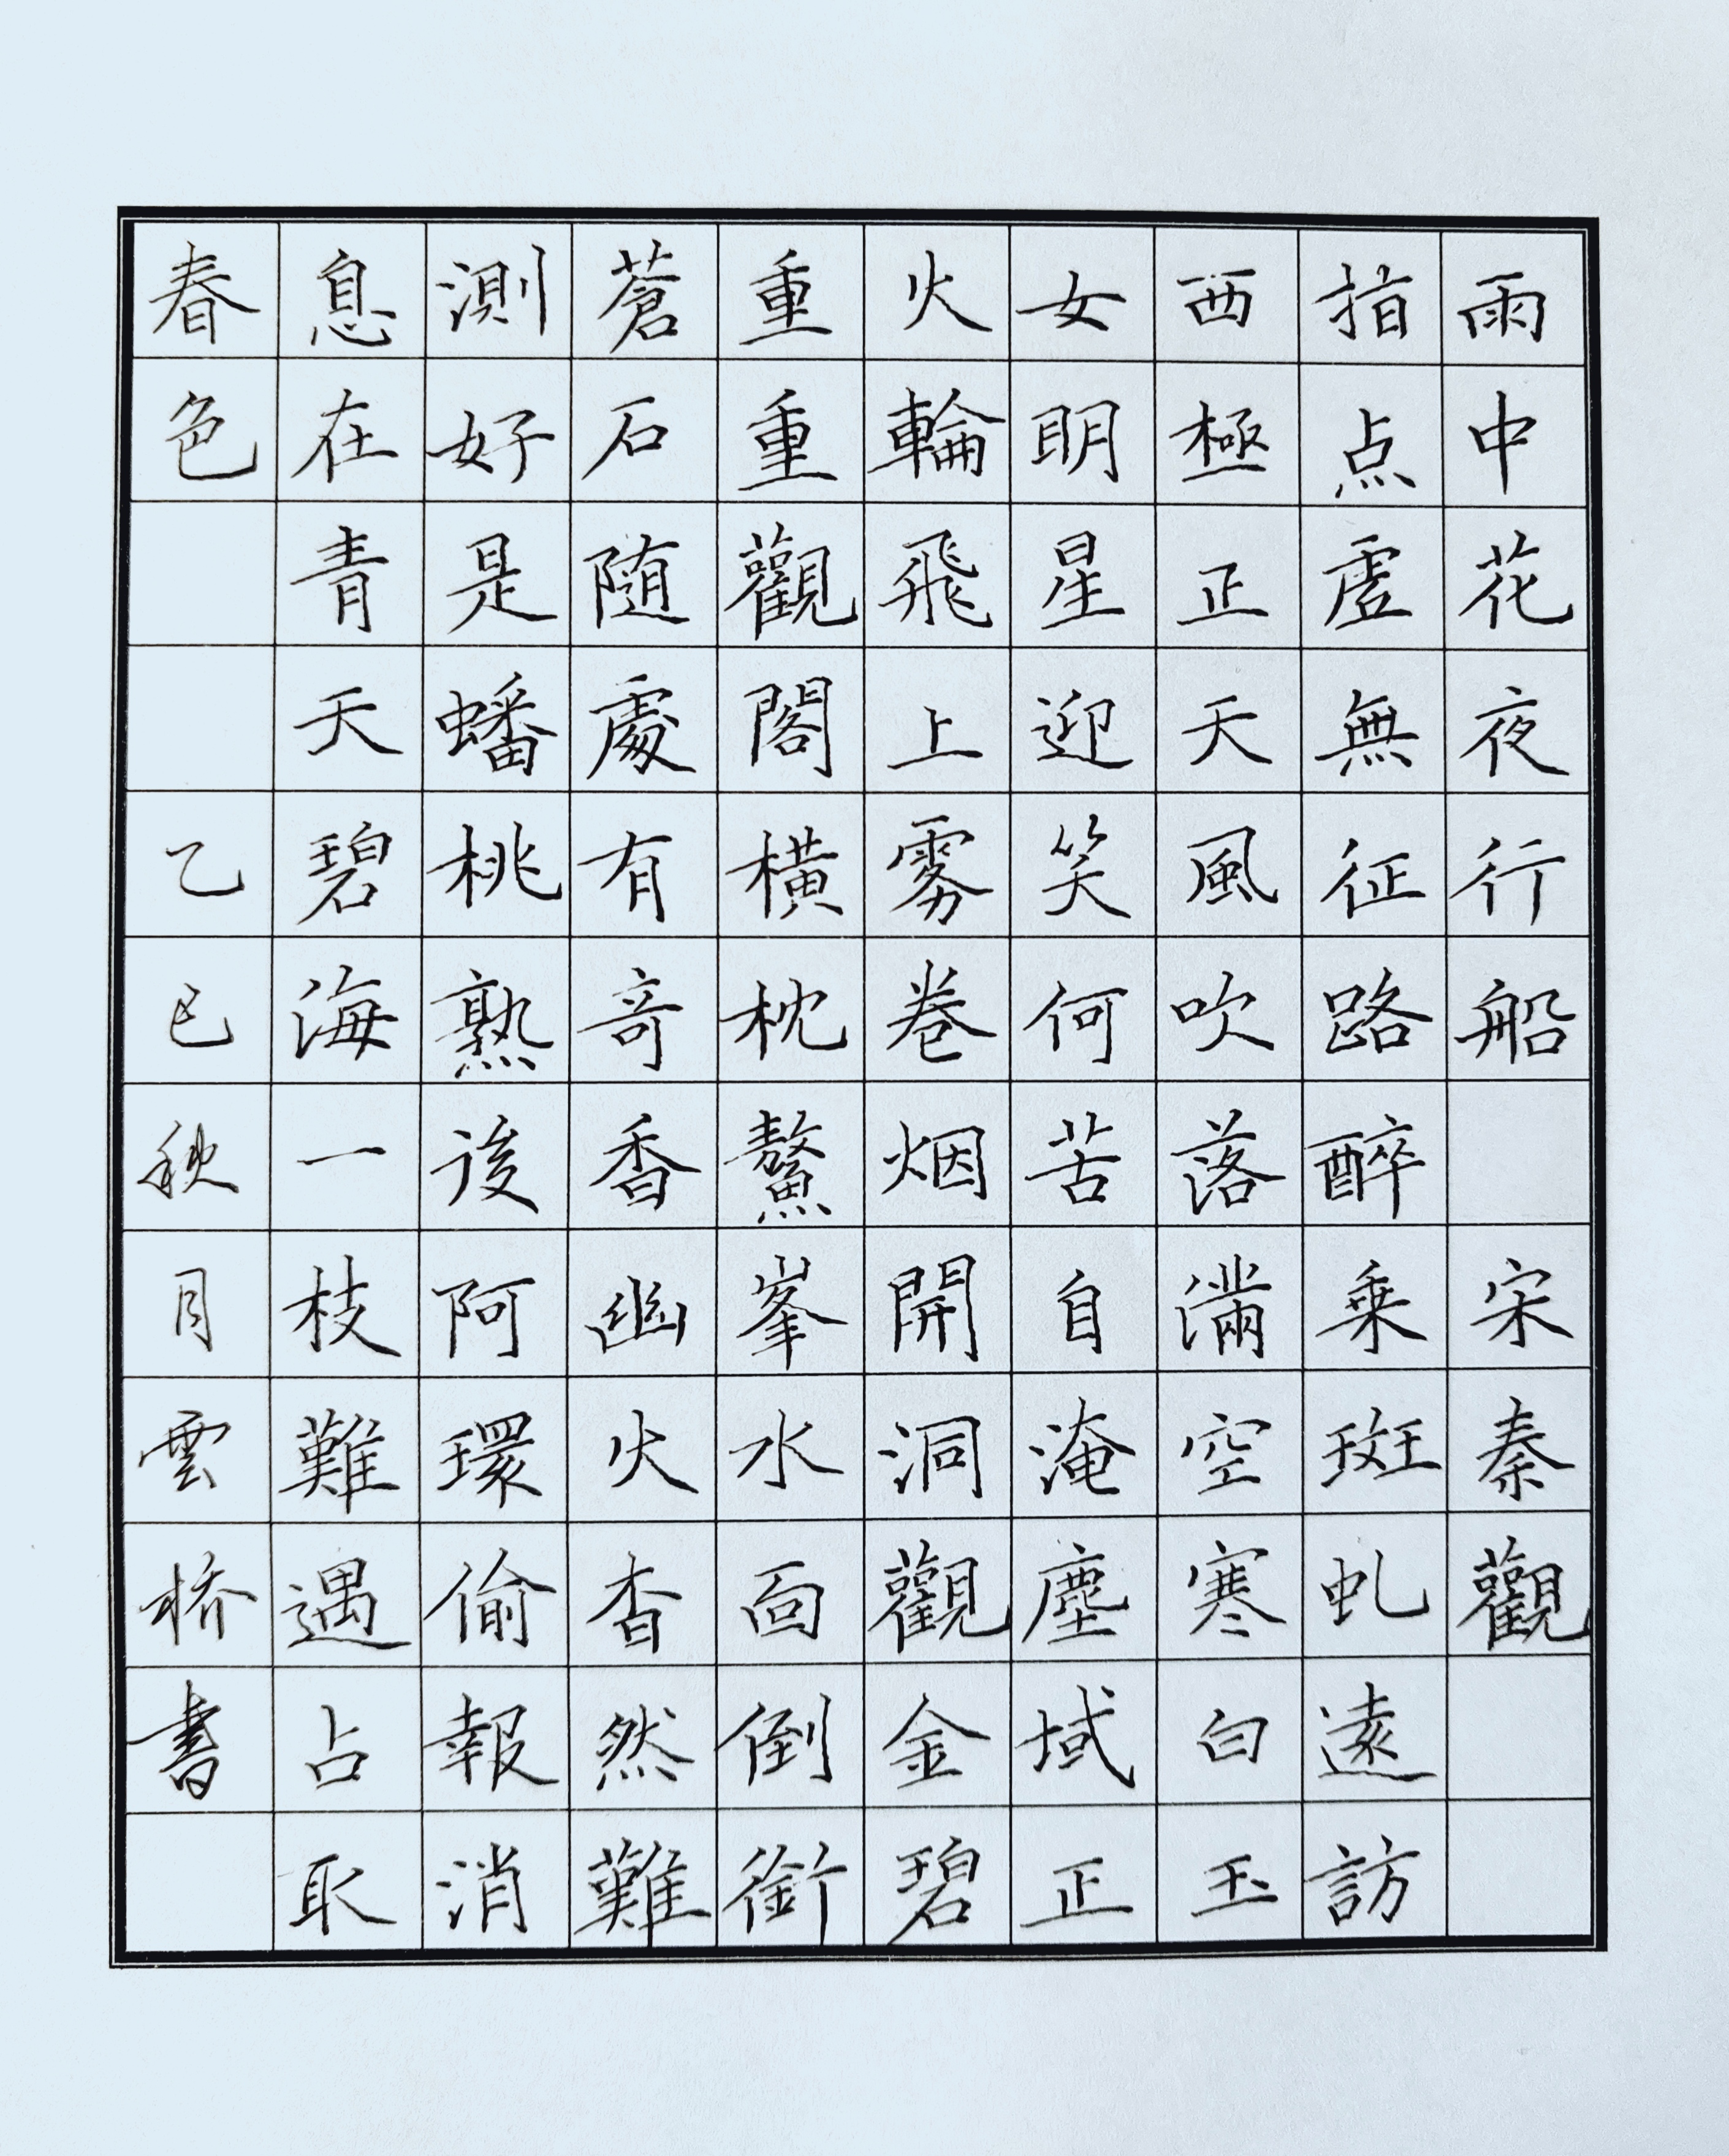 雨中花夜行船 宋秦觀
指点虗無征路醉乗斑虬遠訪
西極正天風吹落滿空寒白玉
女明星迎笑何苦自淹塵域正
火輪飛上霧卷烟開洞觀金碧
重重觀閣橫枕鰲峯水靣倒銜
蒼石随處有竒香幽火杳然難
測好是蟠桃熟後阿環偷報消
息在青天碧海一枝難遇占取
春色 乙巳秋月雲桥書